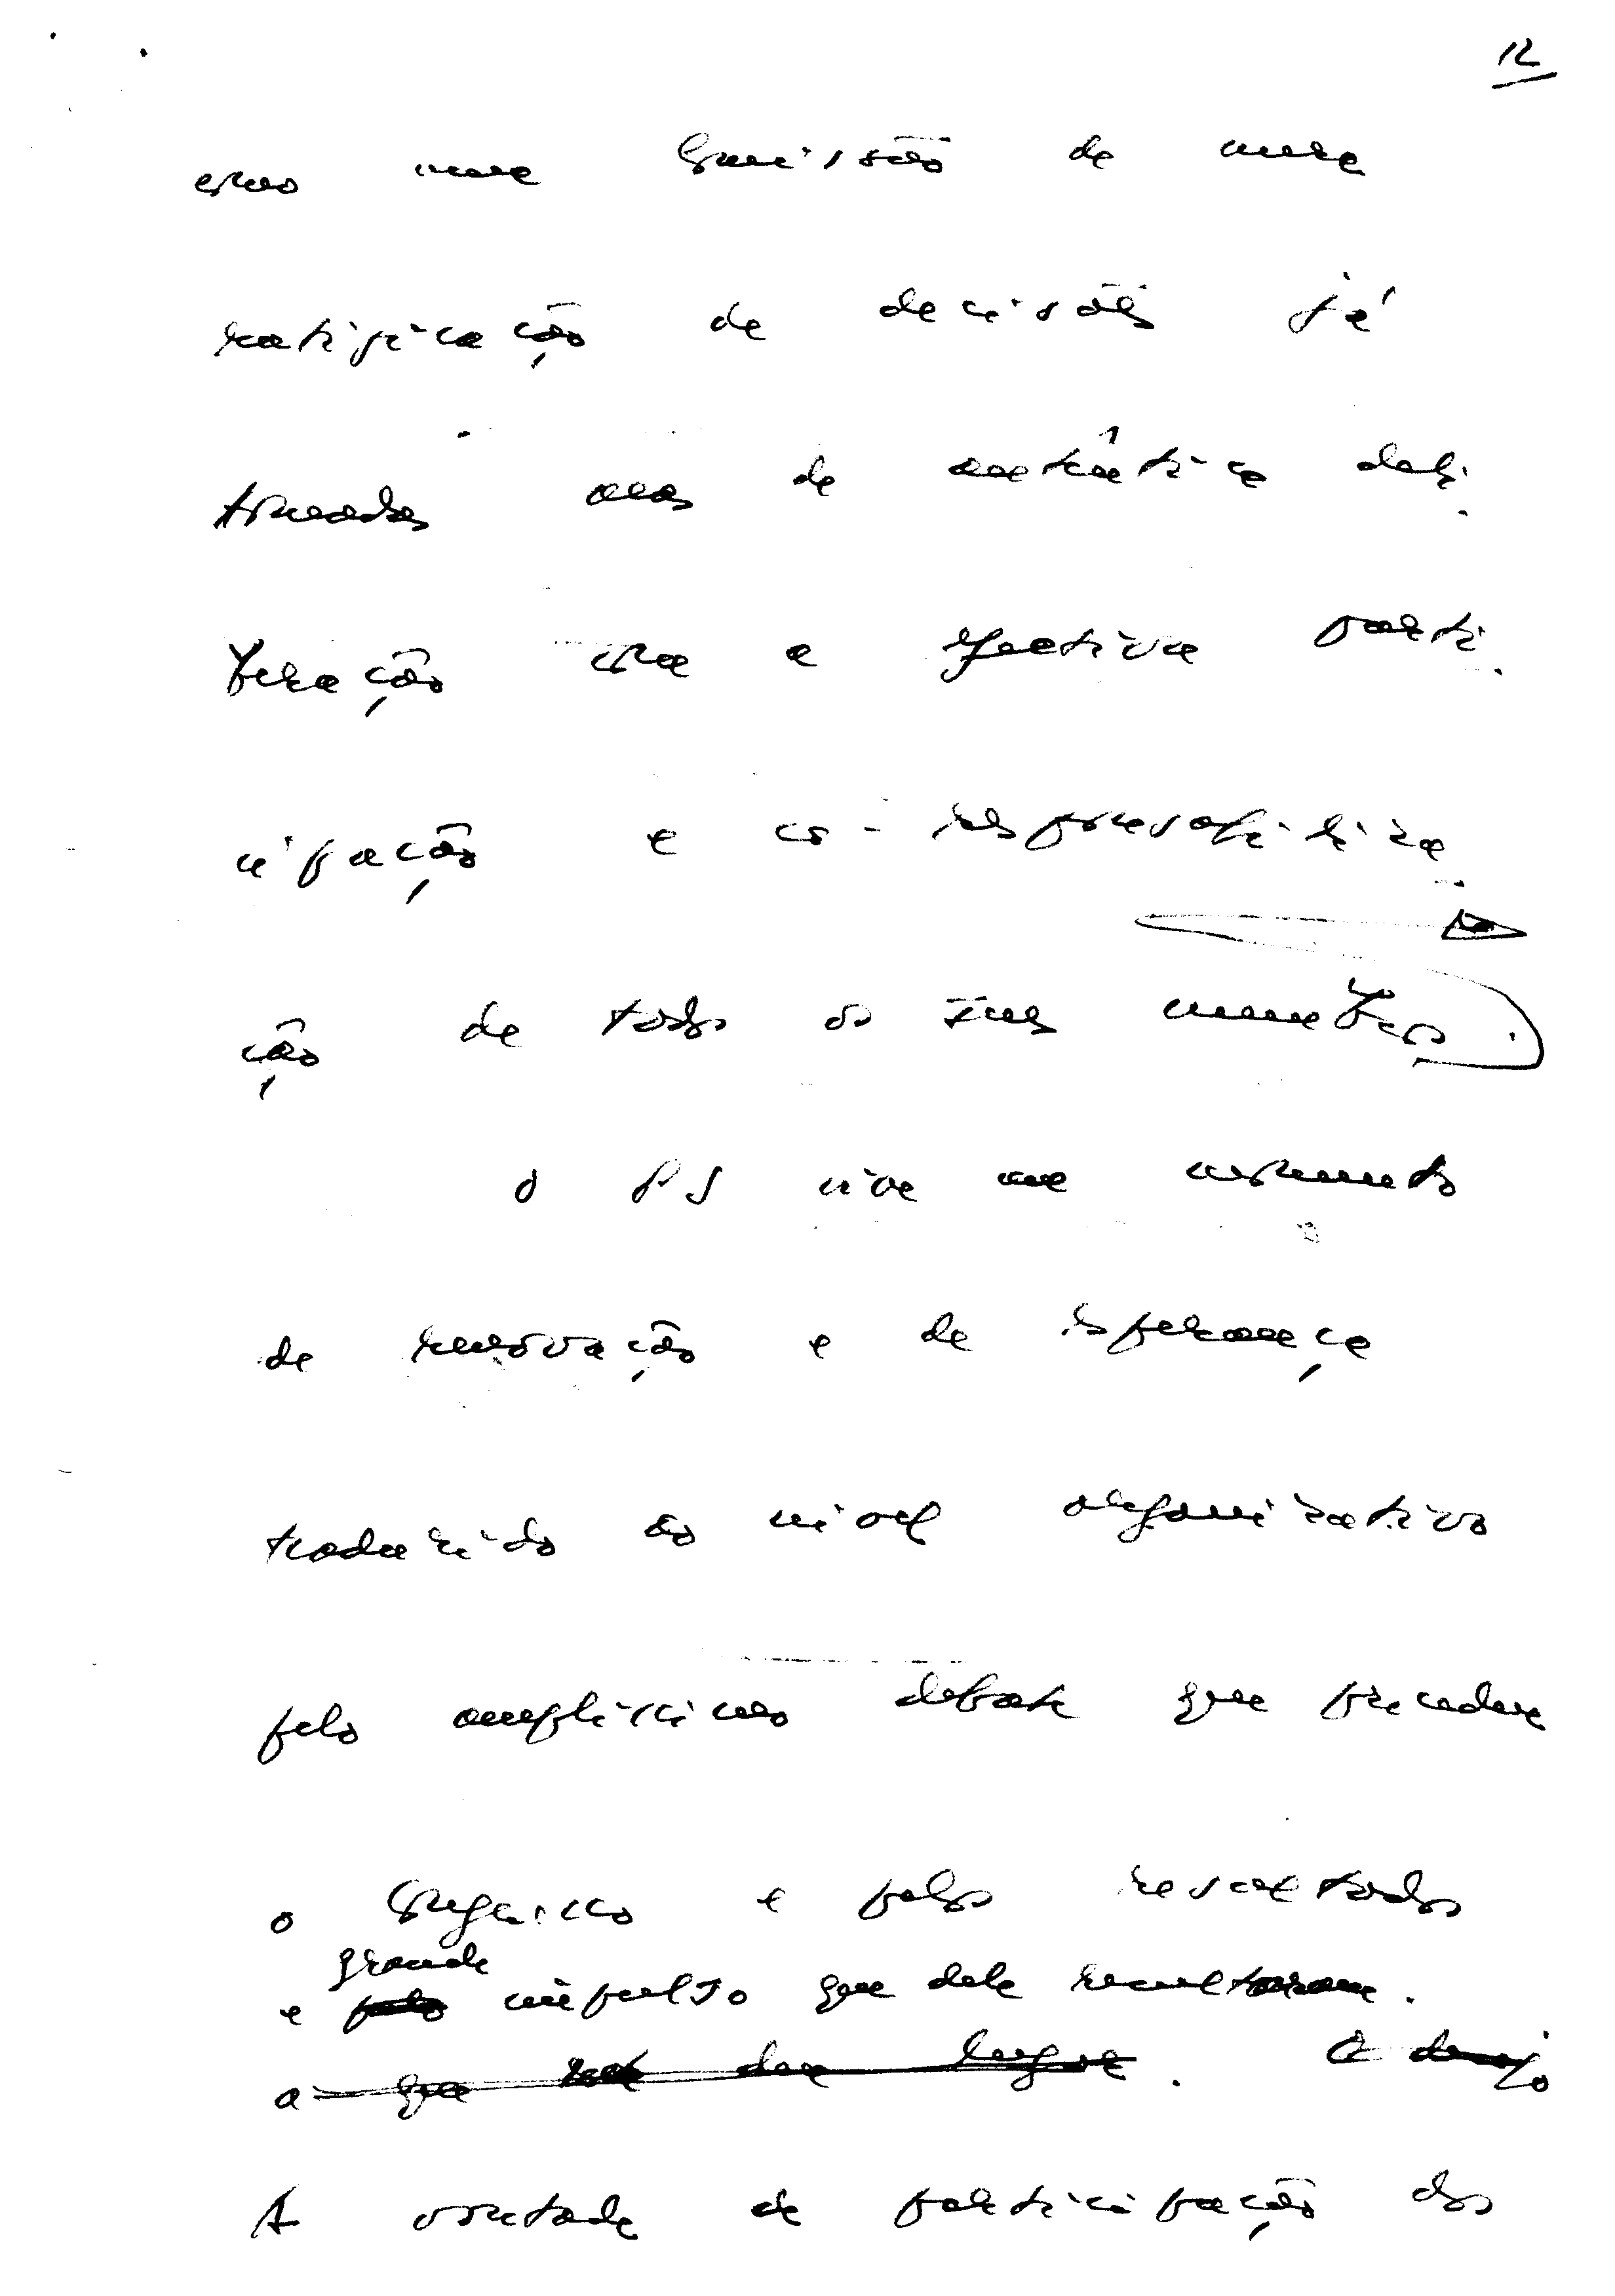 12
como uma comissão de mera
ratificação de decisões já
tomadas mas de autêntica deli-
beração com a efectiva parti-
cipação e co-responsabiliza-
ção de todos os seus membros.
O PS vive um momento
de renovação e de esperança
traduzido ao nível organizativo
pelo amplíssimo debate que precedeu
o Congresso e pelos resultados
grande
e pelo impulso que dele resultaram.
a que deu lugar. O desejo
A vontade de participação dos